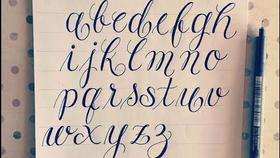 abcdefgh
ijklmno
pqrsstuv
wxyzz